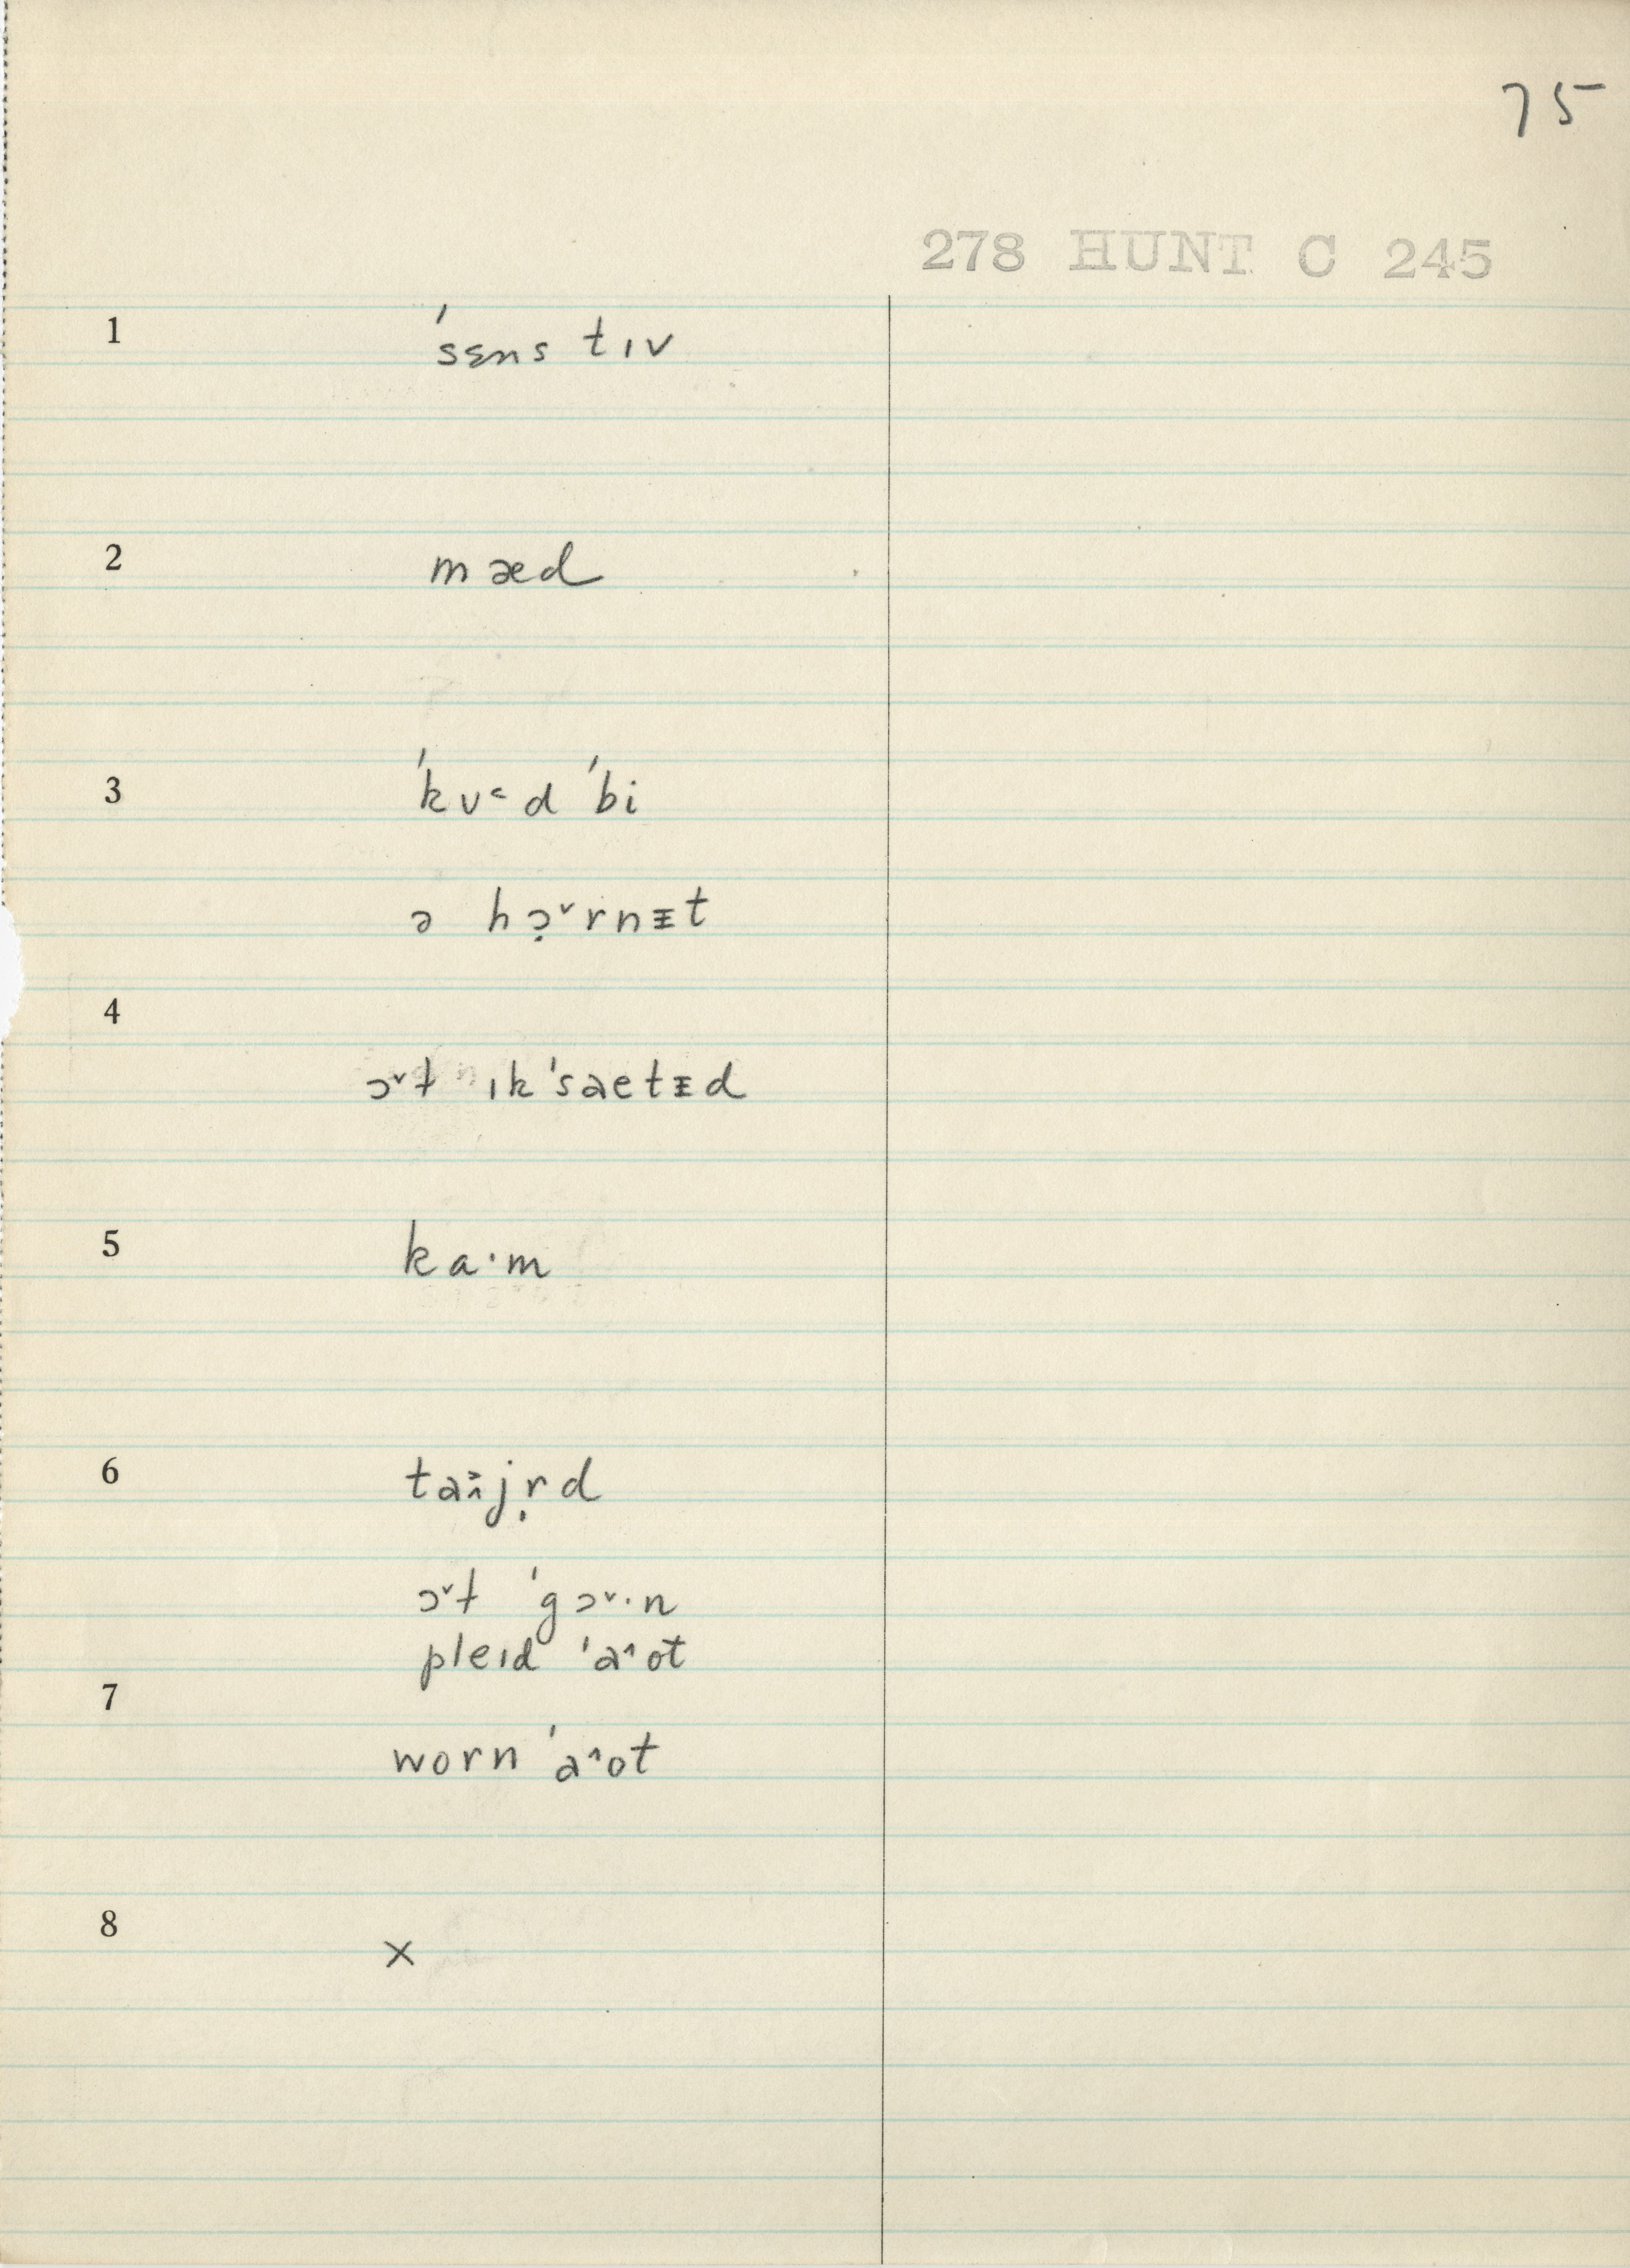 75
278 HUNT C 245
1 ˈsɛns tɪv
2 mæd
3 ˈkʊ˂d ˈbi
ə hɔ̣˅rnᵻt
4
ɔ˅ɫ ɪkˈsaetᵻd
5 ka·m
6 taɪ̯̂jṛd
ɔ˅ɫ ˈgɔ˅·n
pleɪd ˈa˄ot
7
worn ˈa˄ot
8 ×